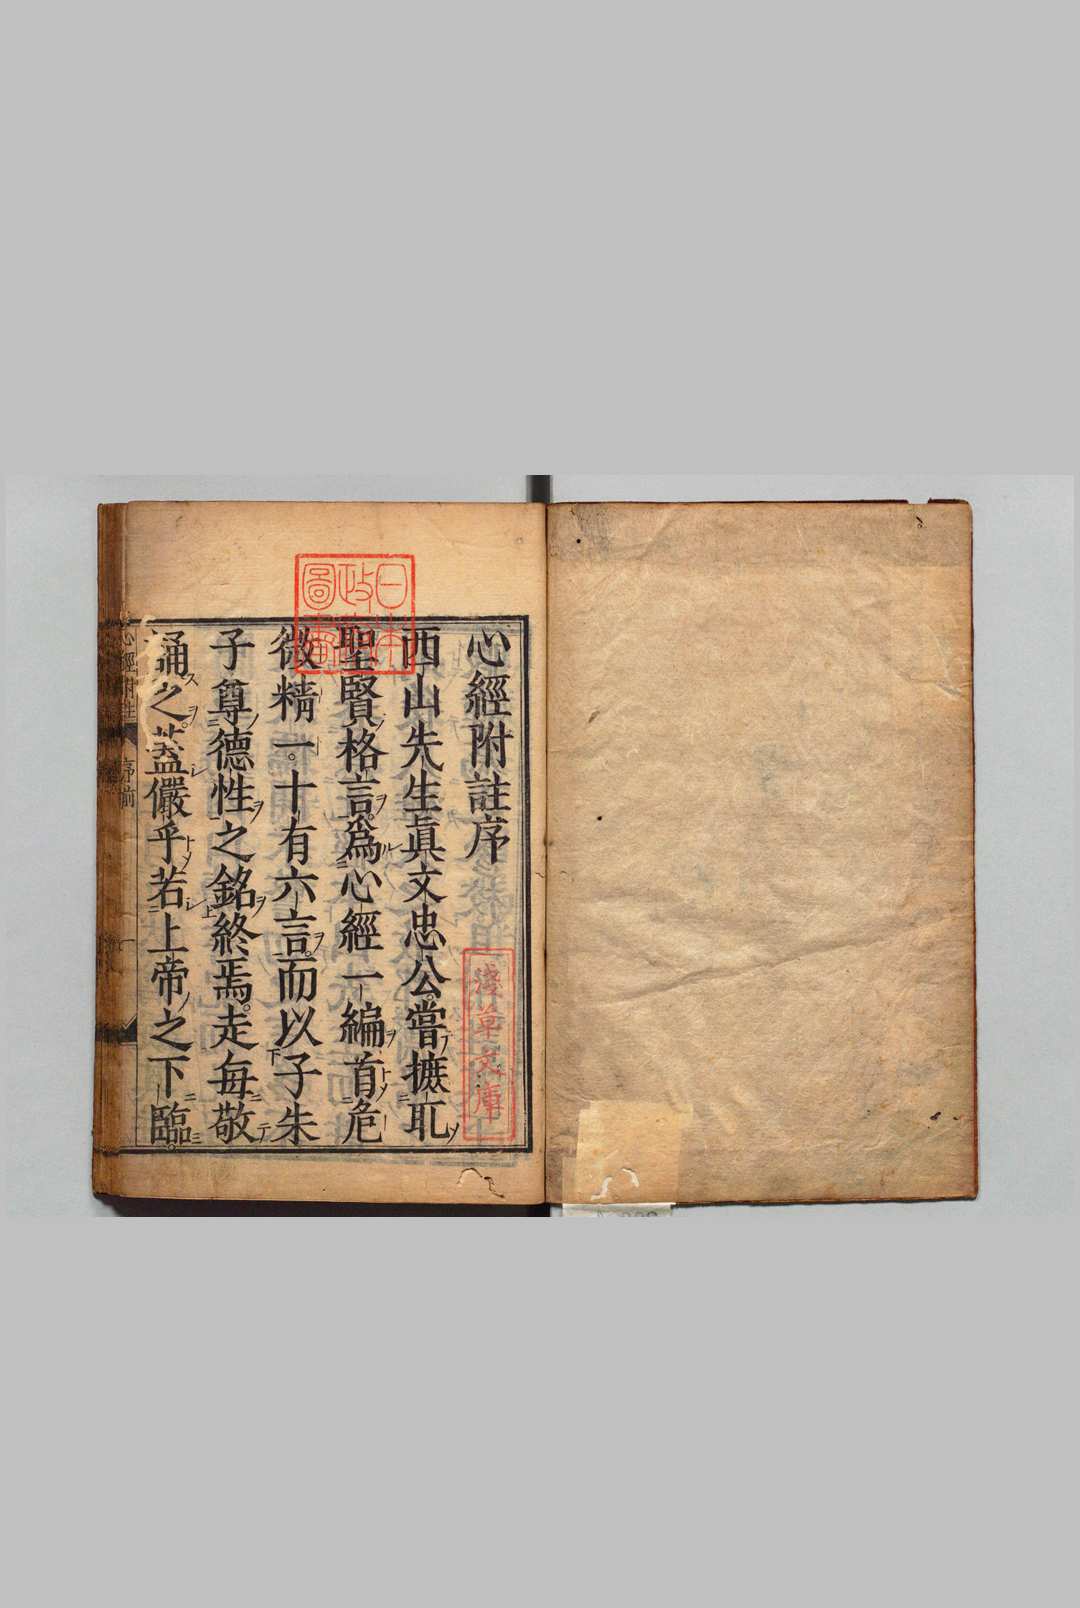 心經附註序
西山先生眞文忠公嘗摭取
聖賢格言爲心經一編首危
微精一十有六言而以子朱
子尊德性之銘終焉走每敬
誦之葢儼乎若上帝之下臨
心經附註 序前
日本政府圖書
淺草文庫